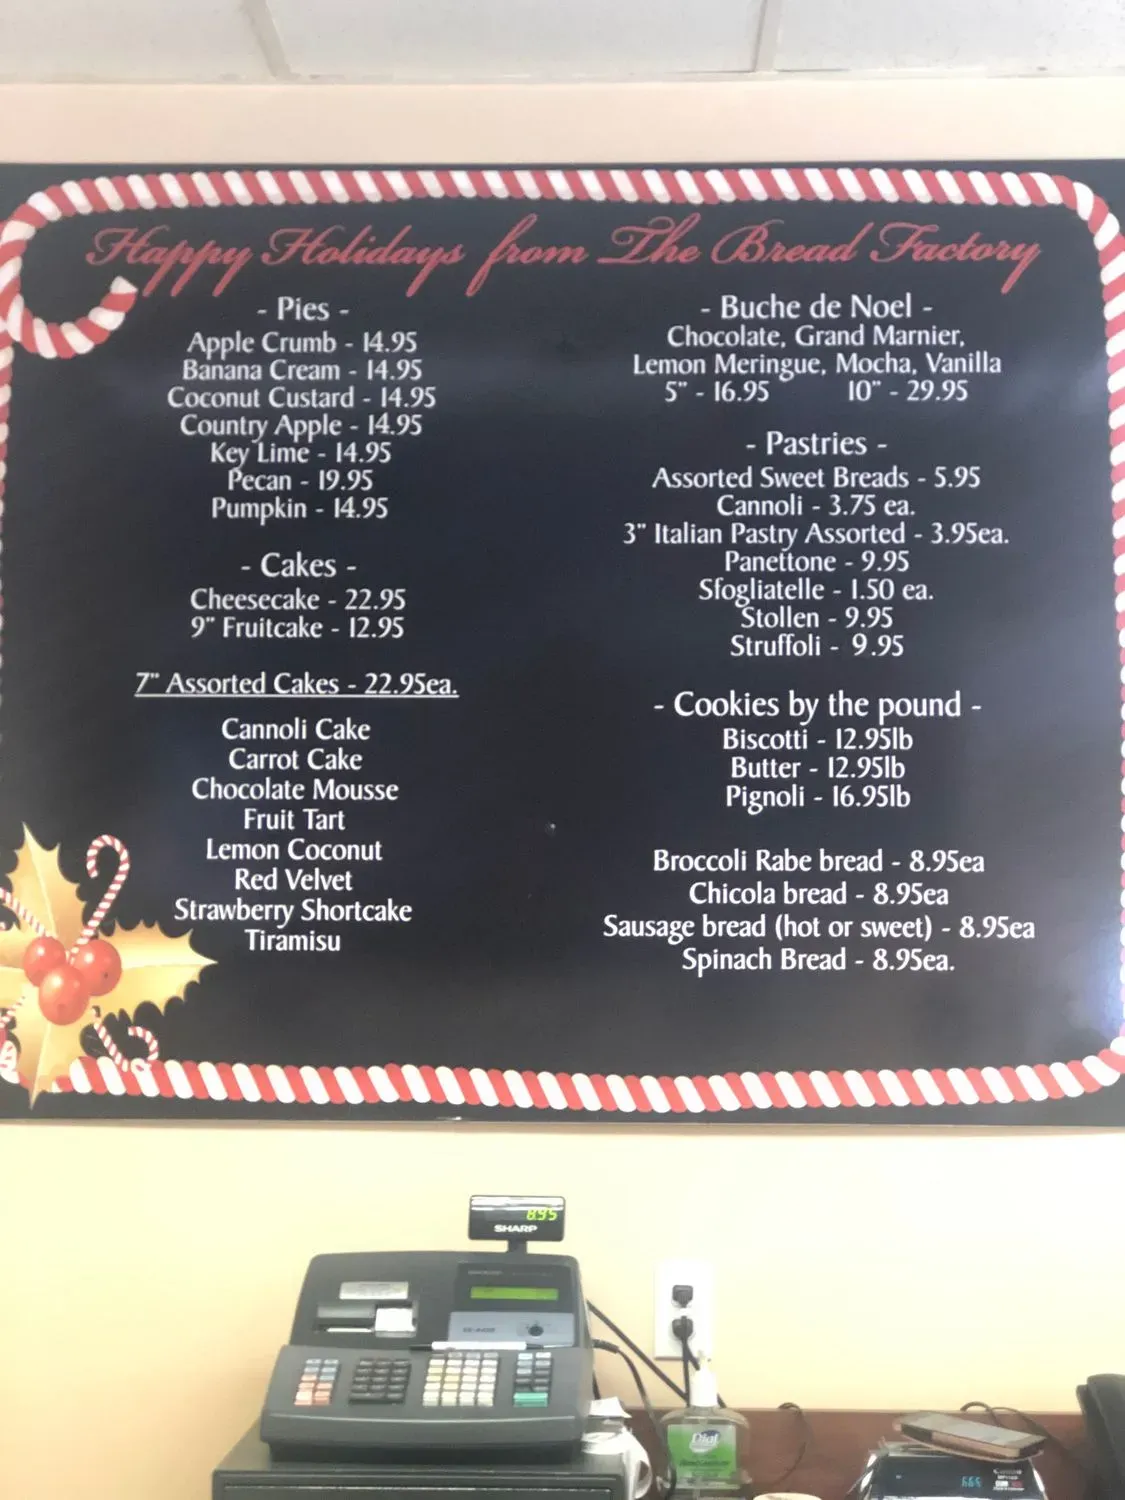 Happy Holidays from The Bread Factory
- Pies -
Apple Crumb - 14.95
Banana Cream - 14.95
Coconut Custard - 14.95
Country Apple - 14.95
Key Lime - 14.95
Pecan - 19.95
Pumpkin - 14.95
- Cakes -
Cheesecake - 22.95
9" Fruitcake - 12.95
7" Assorted Cakes - 22.95ea.
Cannoli Cake
Carrot Cake
Chocolate Mousse
Fruit Tart
Lemon Coconut
Red Velvet
Strawberry Shortcake
Tiramisu
- Buche de Noel -
Chocolate, Grand Marnier,
Lemon Meringue, Mocha, Vanilla
5" - 16.95 10" - 29.95
- Pastries -
Assorted Sweet Breads - 5.95
Cannoli - 3.75 ea.
3" Italian Pastry Assorted - 3.95ea.
Panettone - 9.95
Sfogliatelle - 1.50 ea.
Stollen - 9.95
Struffoli - 9.95
- Cookies by the pound -
Biscotti - 12.95lb
Butter - 12.95lb
Pignoli - 16.95lb
Broccoli Rabe bread - 8.95ea
Chicola bread - 8.95ea
Sausage bread (hot or sweet) - 8.95ea
Spinach Bread - 8.95ea.
8.95
SHARP
Dial